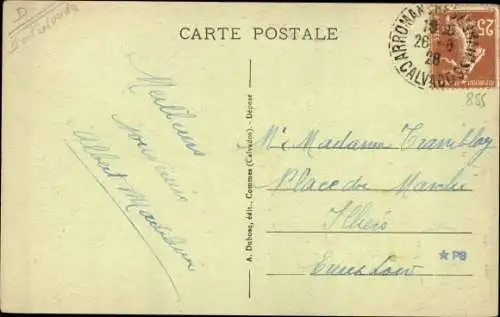 D
CARTE POSTALE
ARROMANCHES
26-8
28
CALVADOS
25c
855
Meilleurs
souvenirs
Albert Madeleine
A. Dubosq, édit., Commes (Calvados) - Déposé
Mr Madame Tremblay
Place du Marché
Illiers
Eure & Loir
*PB